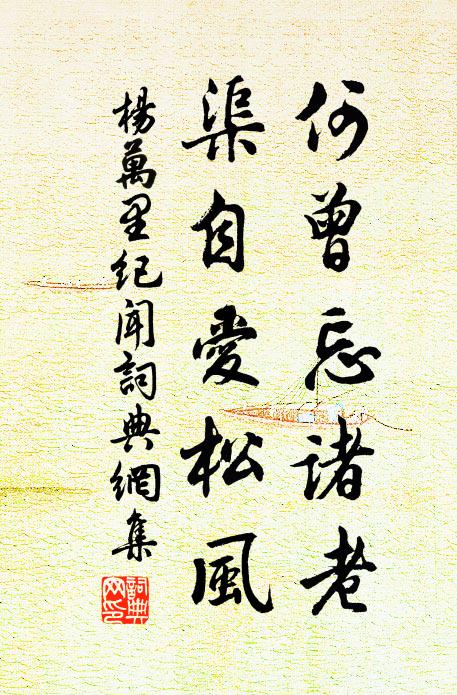 何曾忘諸老
渠自愛松風
楊萬里紀聞詞典網集
詞典網印